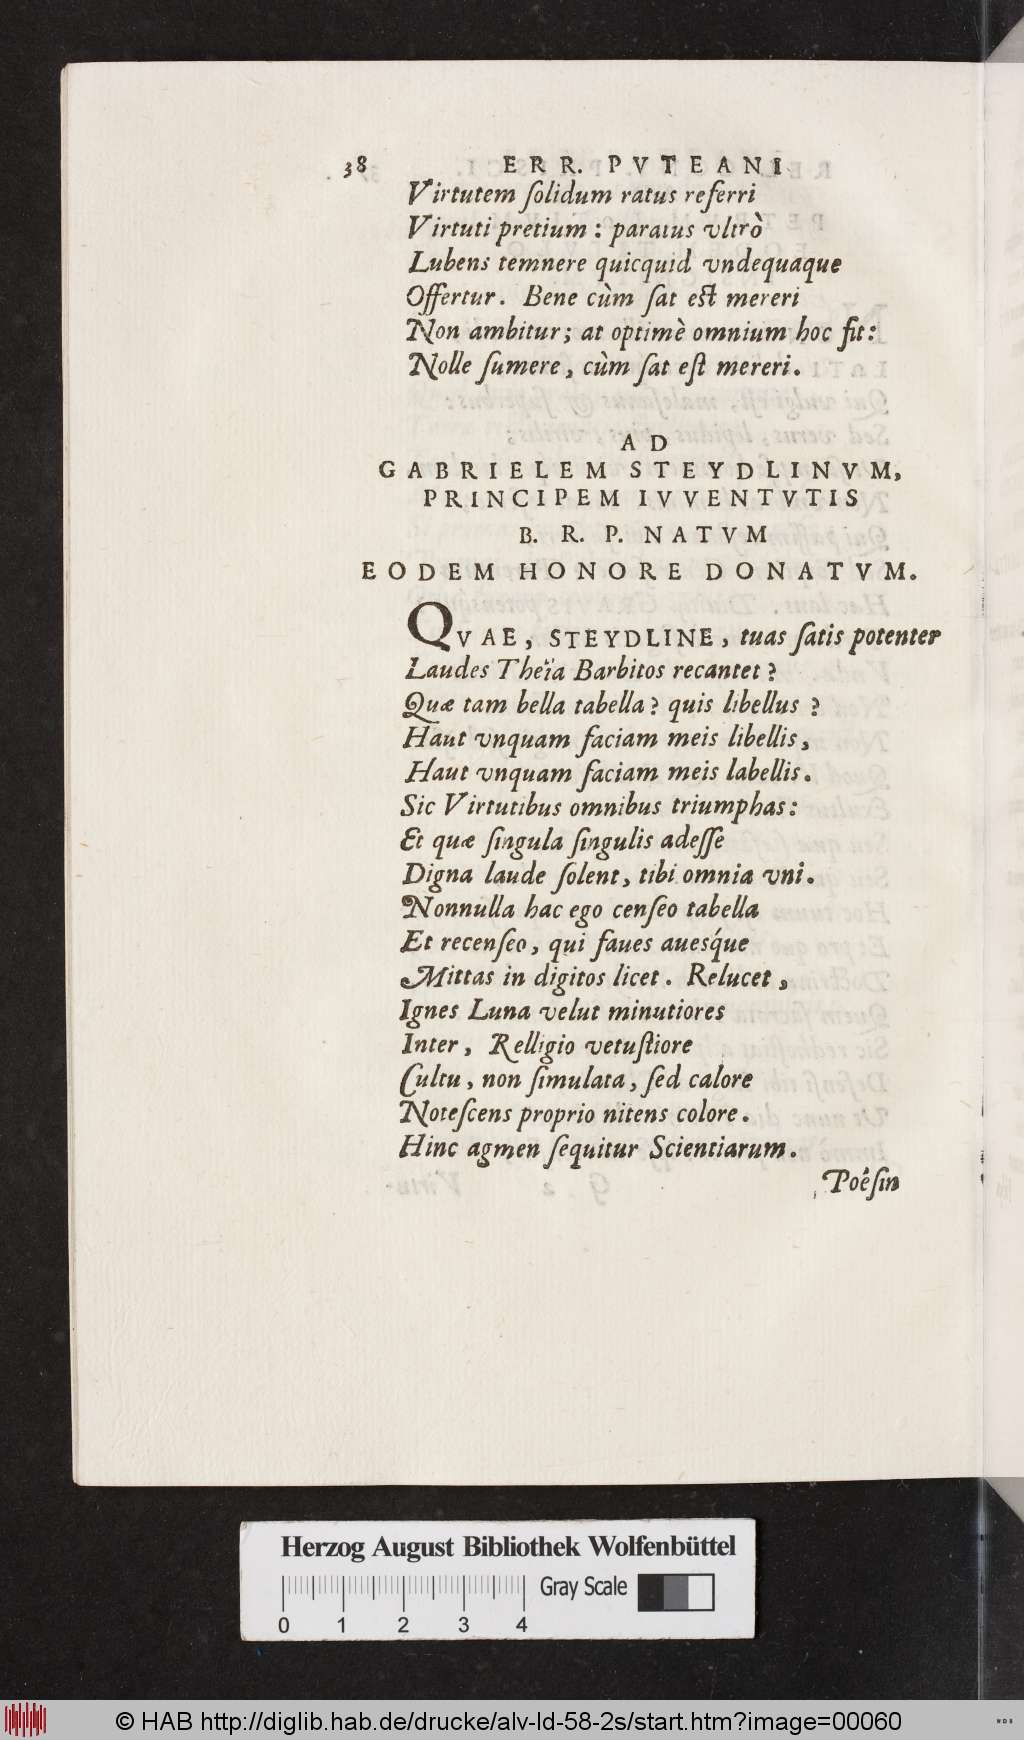 38 ERR. PVTEANI
Virtutem ſolidum ratus referri
Virtuti pretium : paratus vltrò
Lubens temnere quicquid vndequaque
Offertur. Bene cùm ſat eſt mereri
Non ambitur; at optimè omnium hoc fit:
Nolle ſumere, cùm ſat eſt mereri.
AD
GABRIELEM STEYDLINVM,
PRINCIPEM IVVENTVTIS
B. R. P. NATVM
EODEM HONORE DONATVM.
QVAE, STEYDLINE, tuas ſatis potenter
Laudes Theïa Barbitos recantet?
Quæ tam bella tabella? quis libellus?
Haut vnquam faciam meis libellis,
Haut vnquam faciam meis labellis.
Sic Virtutibus omnibus triumphas:
Et quæ ſingula ſingulis adeſſe
Digna laude ſolent, tibi omnia vni.
Nonnulla hac ego cenſeo tabella
Et recenſeo, qui faues aueśque
Mittas in digitos licet. Relucet,
Ignes Luna velut minutiores
Inter, Relligio vetuſtiore
Cultu, non ſimulata, ſed calore
Noteſcens proprio nitens colore.
Hinc agmen ſequitur Scientiarum.
Poëſin
Herzog August Bibliothek Wolfenbüttel
Gray Scale
0 1 2 3 4
© HAB http://diglib.hab.de/drucke/alv-ld-58-2s/start.htm?image=00060